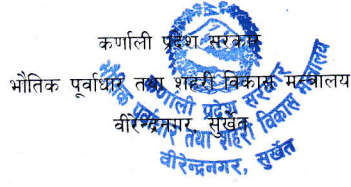 कर्णाली प्रदेश सरकार
भौतिक पूर्वाधार तथा शहरी विकास मन्त्रालय
वीरेन्द्रनगर, सुर्खेत
कर्णाली प्रदेश सरकार
भौतिक पूर्वाधार तथा शहरी विकास मन्त्रालय
वीरेन्द्रनगर, सुर्खेत